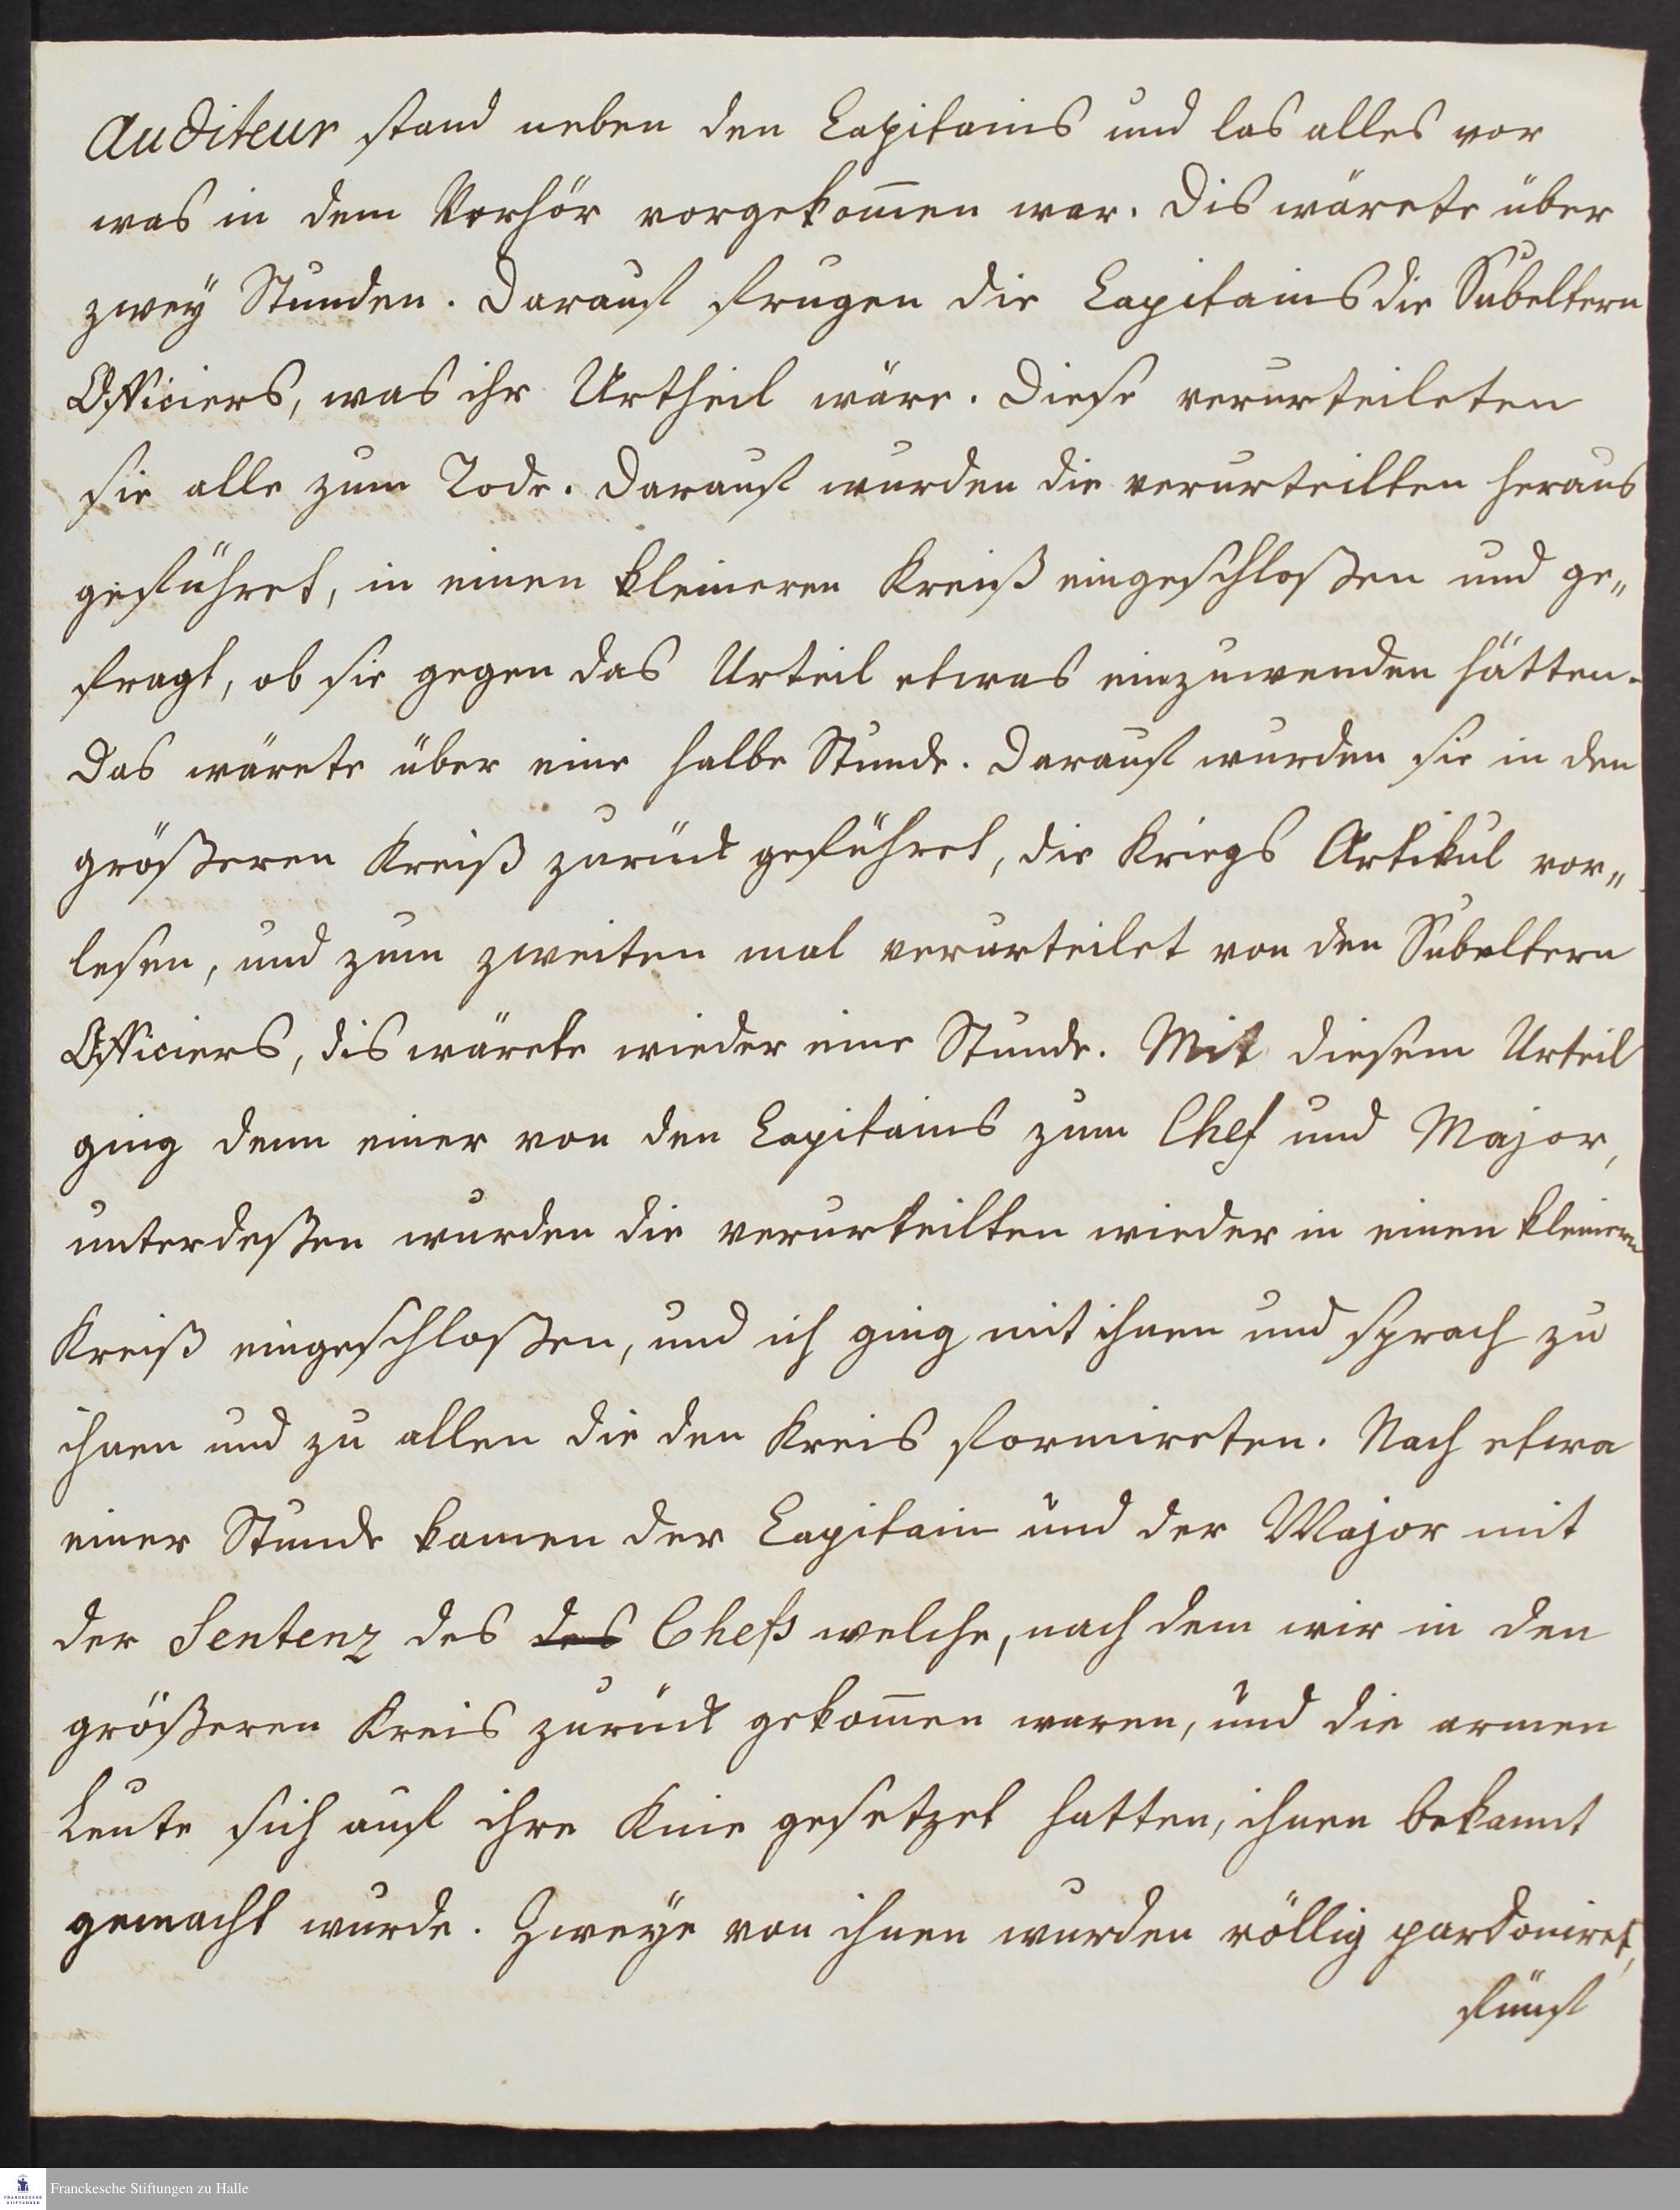 Auditeur stand neben den Capitains und las alles vor
was in dem Verhör vorgekom̄en war. Dis wärete über
zwey Stunden. Darauf frugen die Capitains die Subeltern
Officiers, was ihr Urtheil wäre. Diese verurteileten
sie alle zum Tode. Darauf wurden die verurteilten heraus
geführet, in einen kleineren Kreiß eingeschloßen und ge„
fragt, ob sie gegen das Urteil etwas einzuwenden hätten.
Das wärete über eine halbe Stunde. Darauf wurden sie in den
größeren Kreiß zurück geführet, die Kriegs Artikul vor„
lesen, und zum zweiten mal verurteilet von den Subeltern
Officiers, dis wärete wieder eine Stunde. Mit diesem Urteil
ging denn einer von den Capitains zum Chef und Major,
unterdeßen wurden die verurteilten wieder in einen kleinern
Kreiß eingeschloßen, und ich ging mit ihnen und sprach zu
ihnen und zu allen die den Kreis formireten. Nach etwa
einer Stunde kamen der Capitain und der Major mit
der Sentenz des des Chefs welche, nach dem wir in den
größeren Kreis zurück gekom̄en waren, und die armen
Leute sich auf ihre Knie gesetzet hatten, ihnen bekannt
gemacht wurde. Zweye von ihnen wurden völlig pardoniret,
fünf
Franckesche Stiftungen zu Halle